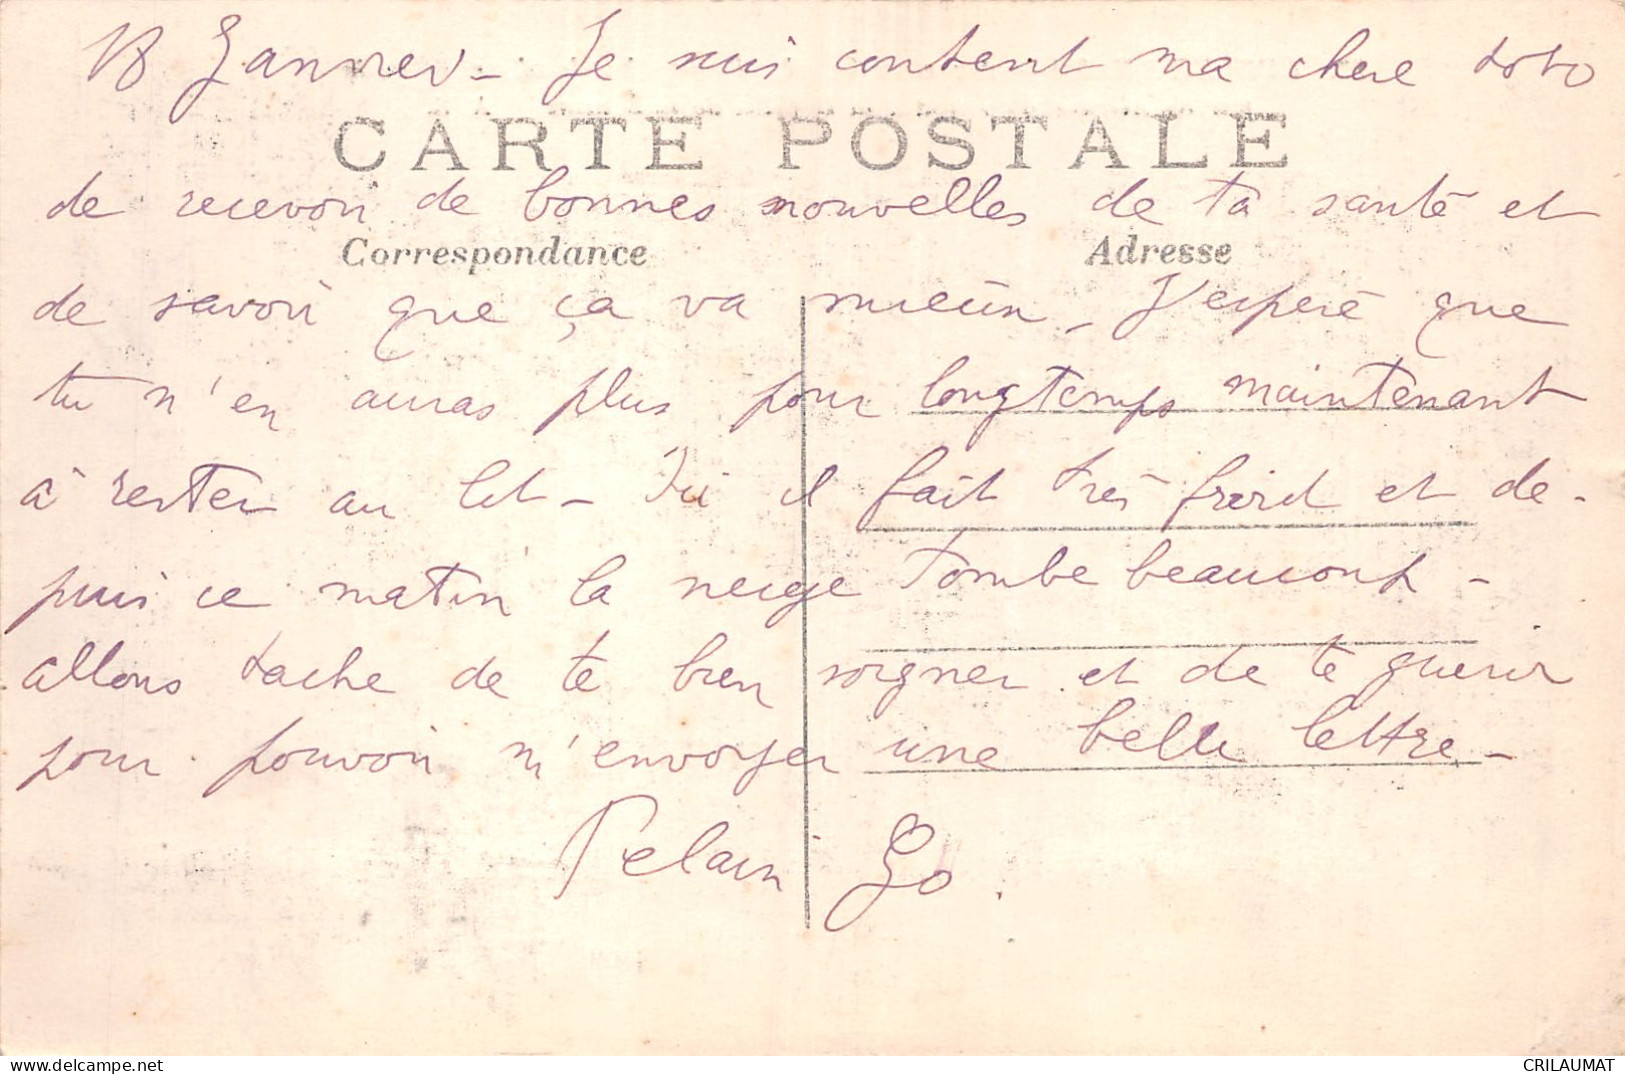 18 Janvier - Je suis content ma chere toto
CARTE POSTALE
de recevoir de bonnes nouvelles de ta santé et
Correspondance
Adresse
de savoir que ça va mieux - J'espere que
tu n'en auras plus pour longtemps maintenant
à rester au lit - Ici il fait très froid et de-
puis ce matin la neige tombe beaucoup -
allons tache de te bien soigner et de te guerir
pour pouvoir m'envoyer une belle lettre -
delcampe.net
CRILAUMAT